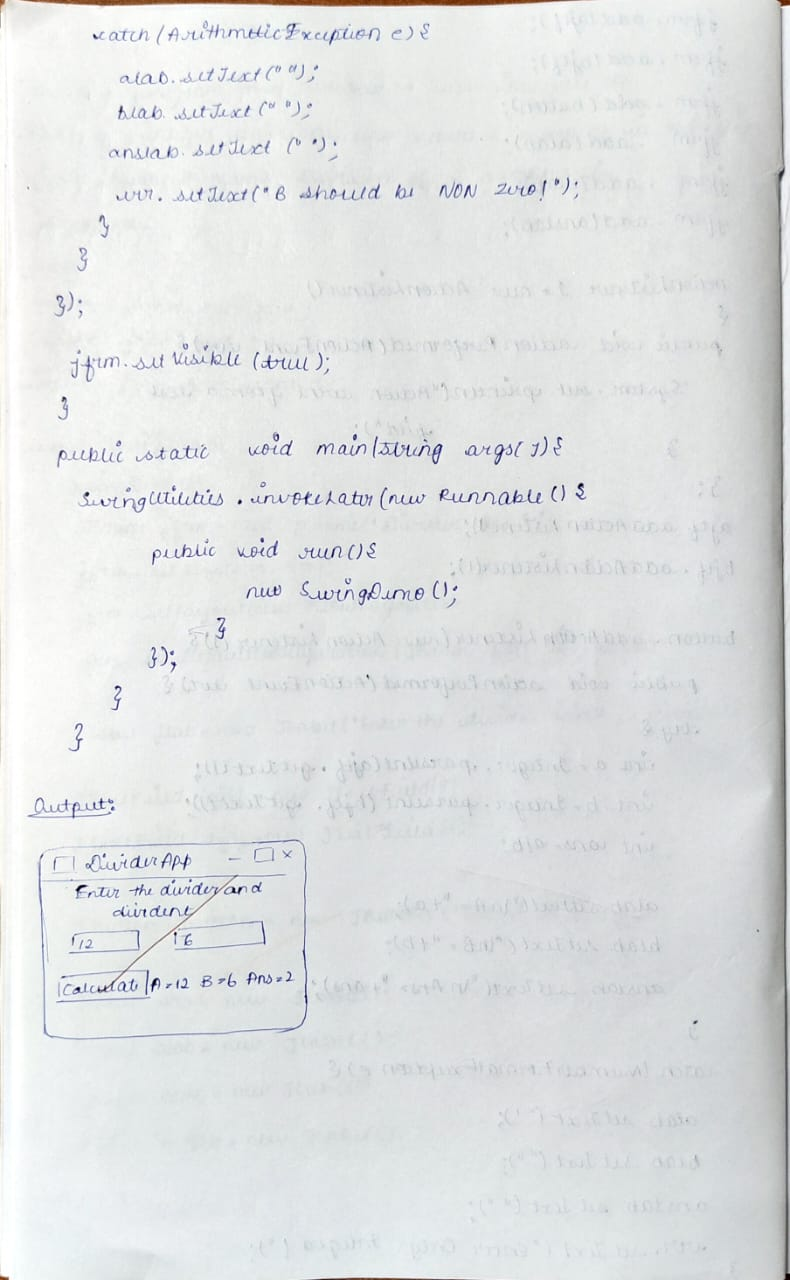 catch (ArithmeticException e) {
alab.setText(" ");
blab.setText(" ");
anslab.setText(" ");
err.setText("B should be NON zero!");
}
}
});
jfrm.setVisible (true);
}
public static void main(String args[]){
SwingUtilities.invokeLater(new Runnable() {
public void run(){
new SwingDemo();
}
});
}
}
Output:
DividerApp - □ ×
Enter the divider and
divident
12 6
Calculate A=12 B=6 Ans=2